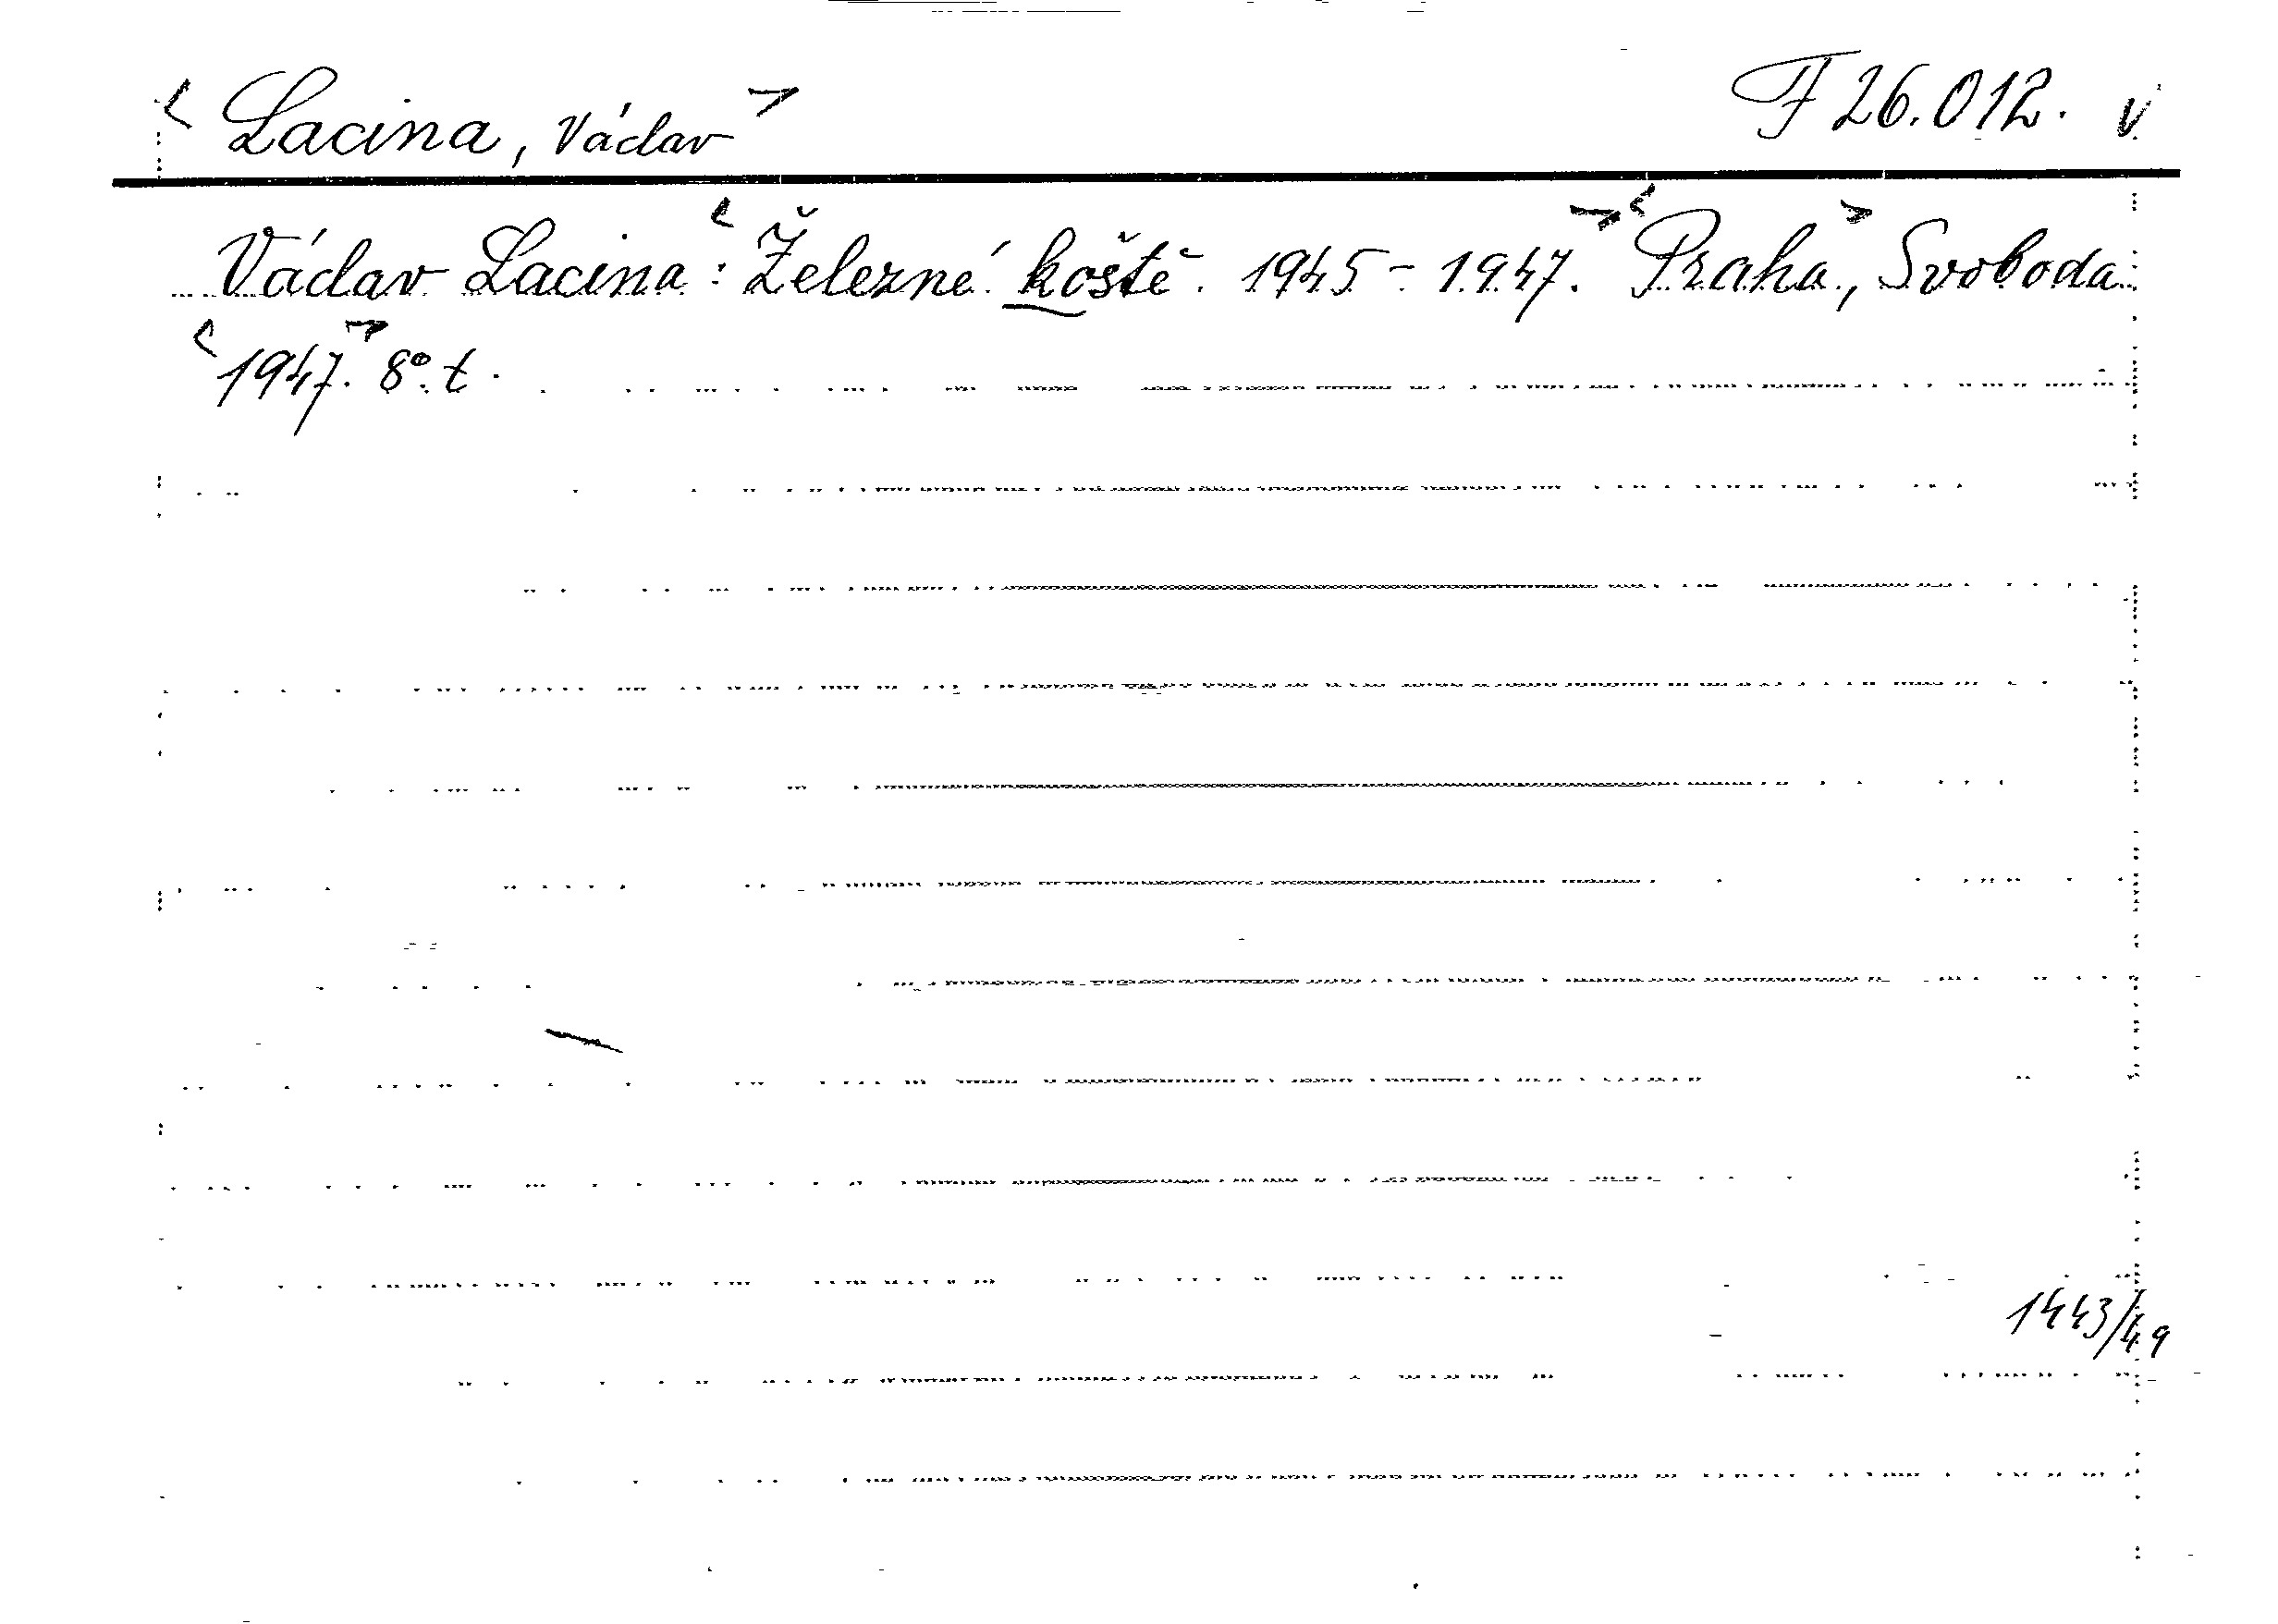 < Lacina, Václav > F 26.012. v
Václav Lacina: < Železné koště. 1945-1947. > < Praha >, Svoboda
< 1947. > 8°. t.
1443/49